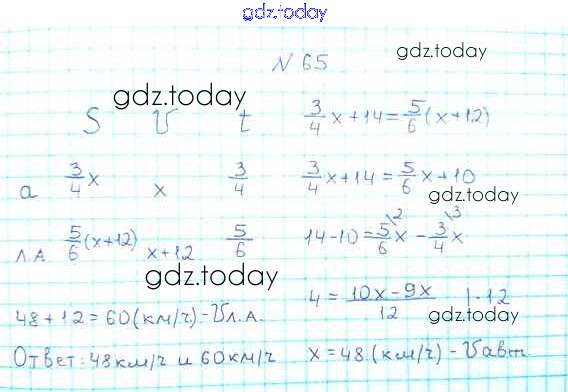 gdz.today
N 65
gdz.today
gdz.today
S V t
а 3/4 x x 3/4
л.а 5/6 (x+12) x+12 5/6
gdz.today
48+12=60(км/ч)-Vл.а.
Ответ: 48км/ч и 60км/ч
3/4 x+14=5/6(x+12)
3/4 x+14=5/6 x+10
gdz.today
14-10=5/6\2 x-3/4\3 x
4=10x-9x/12 |·12
gdz.today
x=48(км/ч)-Vавт